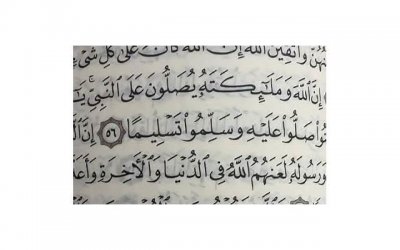 وَٱتَّقِينَ ٱللَّهَ إِنَّ ٱللَّهَ كَانَ عَلَىٰ كُلِّ شَىْءٍ
إِنَّ ٱللَّهَ وَمَلَٰٓئِكَتَهُۥ يُصَلُّونَ عَلَى ٱلنَّبِىِّ ۚ يَٰٓأَ
نُوا۟ صَلُّوا۟ عَلَيْهِ وَسَلِّمُوا۟ تَسْلِيمًا ۝٥٦ إِنَّ ٱلَّ
وَرَسُولَهُۥ لَعَنَهُمُ ٱللَّهُ فِى ٱلدُّنْيَا وَٱلْءَاخِرَةِ وَأَعَدَّ